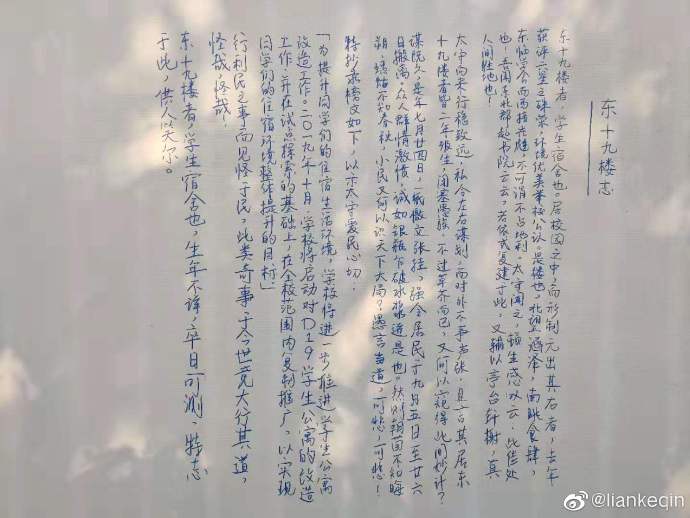 东十九楼志
东十九楼者，学生宿舍也。居校园之中，而形制无出其右者，去年
获评六星之殊荣，环境优美举校公认。是楼也，北望涵泽，南眺食肆，
东临学舍而西接共膳，不可谓不占地利。太守闻之，顿生感叹云：此佳处
也！吾闻东北郡起书院云云，若依式复建于此，又辅以亭台轩榭，真
人间胜地也！
太守向来行稳致远，私令左右谋划，而对外不事声张，且言其居东
十九楼者皆二年级生，闭塞愚顽，不过草芥而已，又何以窥得此间妙计？
谋既久，是年七月廿四日，一纸檄文张挂，强令居民于九月五日至廿六
日搬离。众人群情激愤，诚如银瓶乍破水浆迸是也。然则朝菌不知晦
朔，蟪蛄不知春秋，小民又何以识天下大局？愚言当道，可悲，可悲！
特抄录榜文如下，以示太守爱民心切：
「为提升同学们的住宿生活环境，学校将进一步推进学生公寓
改造工作。二〇一九年十月，学校将启动对D19学生公寓的改造
工作，并在试点探索的基础上，在全校范围内复制推广，以实现
同学们的住宿环境整体提升的目标」
行利民之事而见怪于民，此类奇事于今世竟大行其道，
怪哉，怪哉！
东十九楼者，学生宿舍也，生年不详，卒日可测，特志
于此，供人以笑尔。
@liankeqin